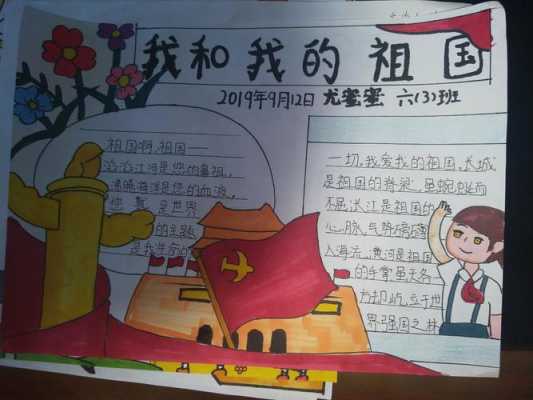 我和我的祖国
2019年9月12日 尤蜜蜜 六(3)班
祖国啊,祖国——
滔滔江河是您的
浩瀚海洋是您的血液,
您 是世界
的
是我
一切,我爱我的祖国,长城
是祖国的脊梁 虽蜿蜒而
不屈 长江是祖国的
心脉,气势磅礴
入海流,黄河是祖国
的手掌 虽
屹立于世
界强国之林